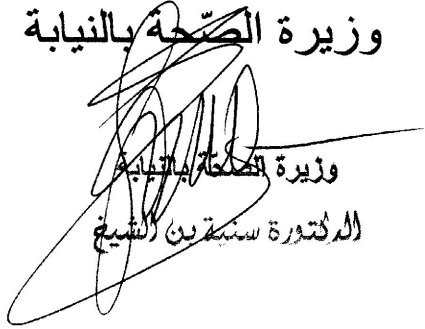 وزيرة الصّحة بالنيابة
وزيرة الصّحّة بالنيابة
الدكتورة سنية بن الشيخ